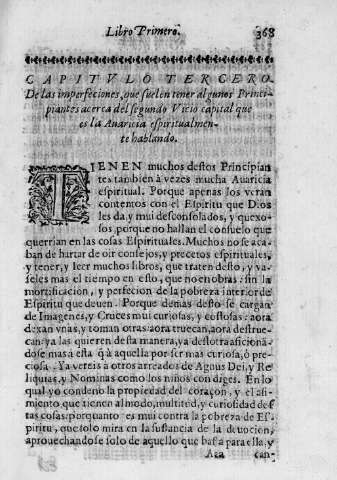 Libro Primero. 368
CAPITVLO TERCERO.
De las imperfeciones, que suelen tener algunos Princi-
piantes acerca del segundo Vicio capital que
es la Auaricia espiritualmen-
te hablando.
TIENEN muchos destos Principian
tes tambien à vezes mucha Auaricia
espiritual. Porque apenas los veran
contentos con el Espiritu que Dios
les da y mui desconsolados, y quexo-
sos, porque no hallan el consuelo que
querrian en las cosas Espirituales. Muchos no se aca-
ban de hartar de oir consejos, y precetos espirituales,
y tener, y leer muchos libros, que traten desto, y va-
seles mas el tiempo en esto, que no en obras: sin la
mortificacion, y perfecion de la pobreza interior de
Espiritu que deuen. Porque demas desto se cargan
de Imagenes, y Cruces mui curiosas, y costosas: aora
dexan vnas, y toman otras: aora truecan, aora destrue-
can: ya las quieren desta manera, ya destotra aficionã-
dose mas à esta q̃ à aquella por ser mas curiosa, ò pre-
ciosa. Ya vereis a otros arreados de Agnus Dei, y Re
liquias, y Nominas como los niños con diges. En lo
qual yo condeno la propiedad del coraçon, y el asi-
miento que tienen al modo, multitud, y curiosidad des
tas cosas: porquanto es mui contra la pobreza de Es-
piritu, que solo mira en la sustancia de la deuocion,
aprouechandose solo de aquello que basta para ella, y
Aaa can-